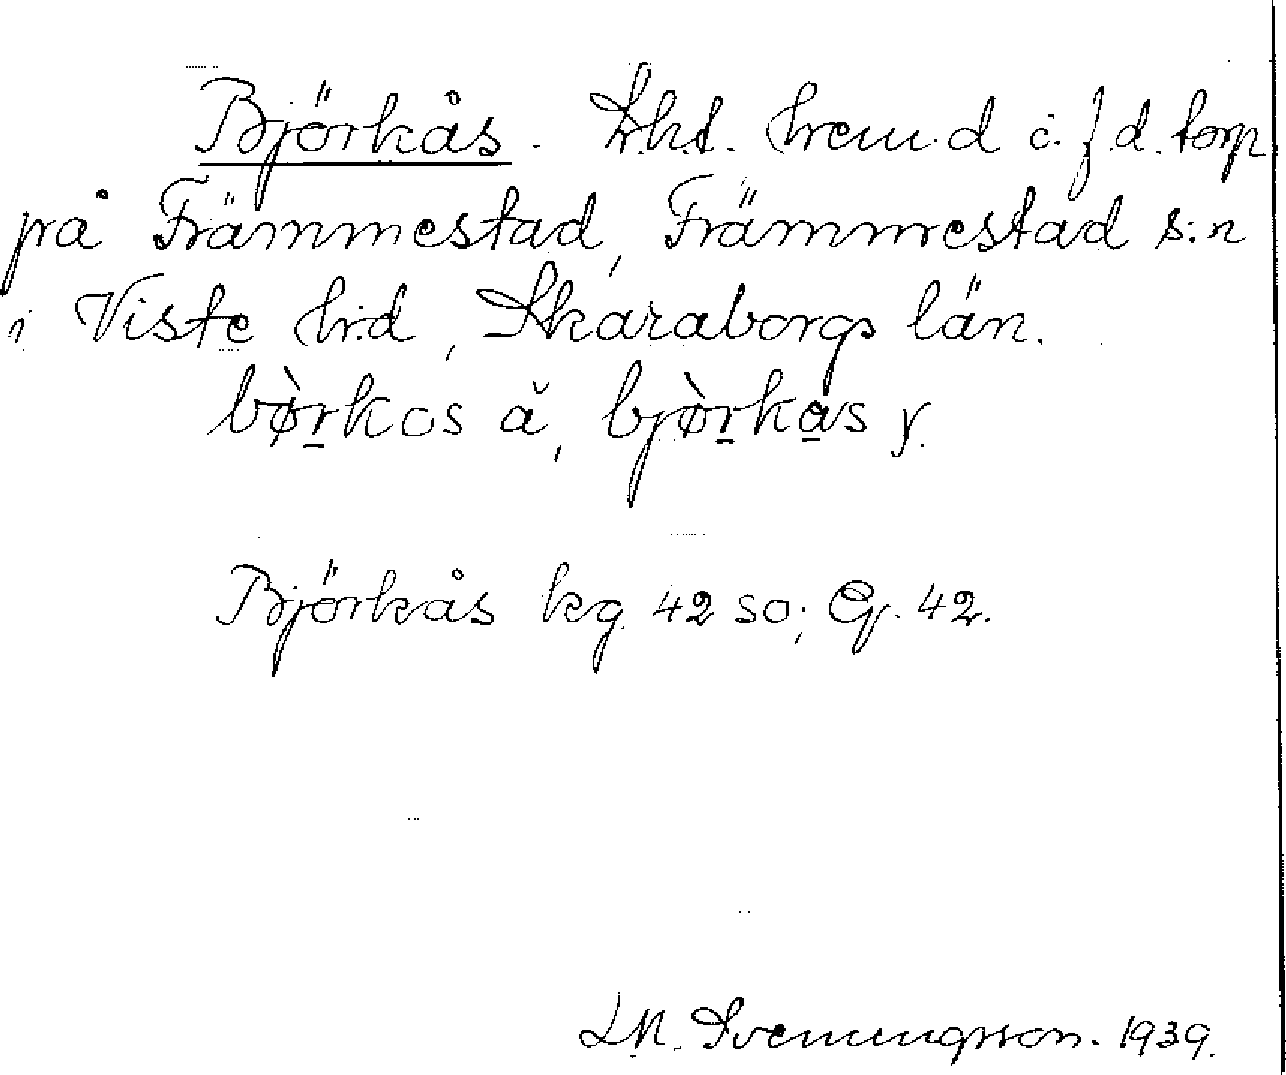 Björkås. Lht. hem.d o. f.d. torp
på Främmestad, Främmestad s:n
i Viste hrd, Skaraborgs län.
bø̀rkos ä, bjø̀rkas y.
Björkås kg. 42 so; Gg. 42.
L.N. Svenungsson. 1939.